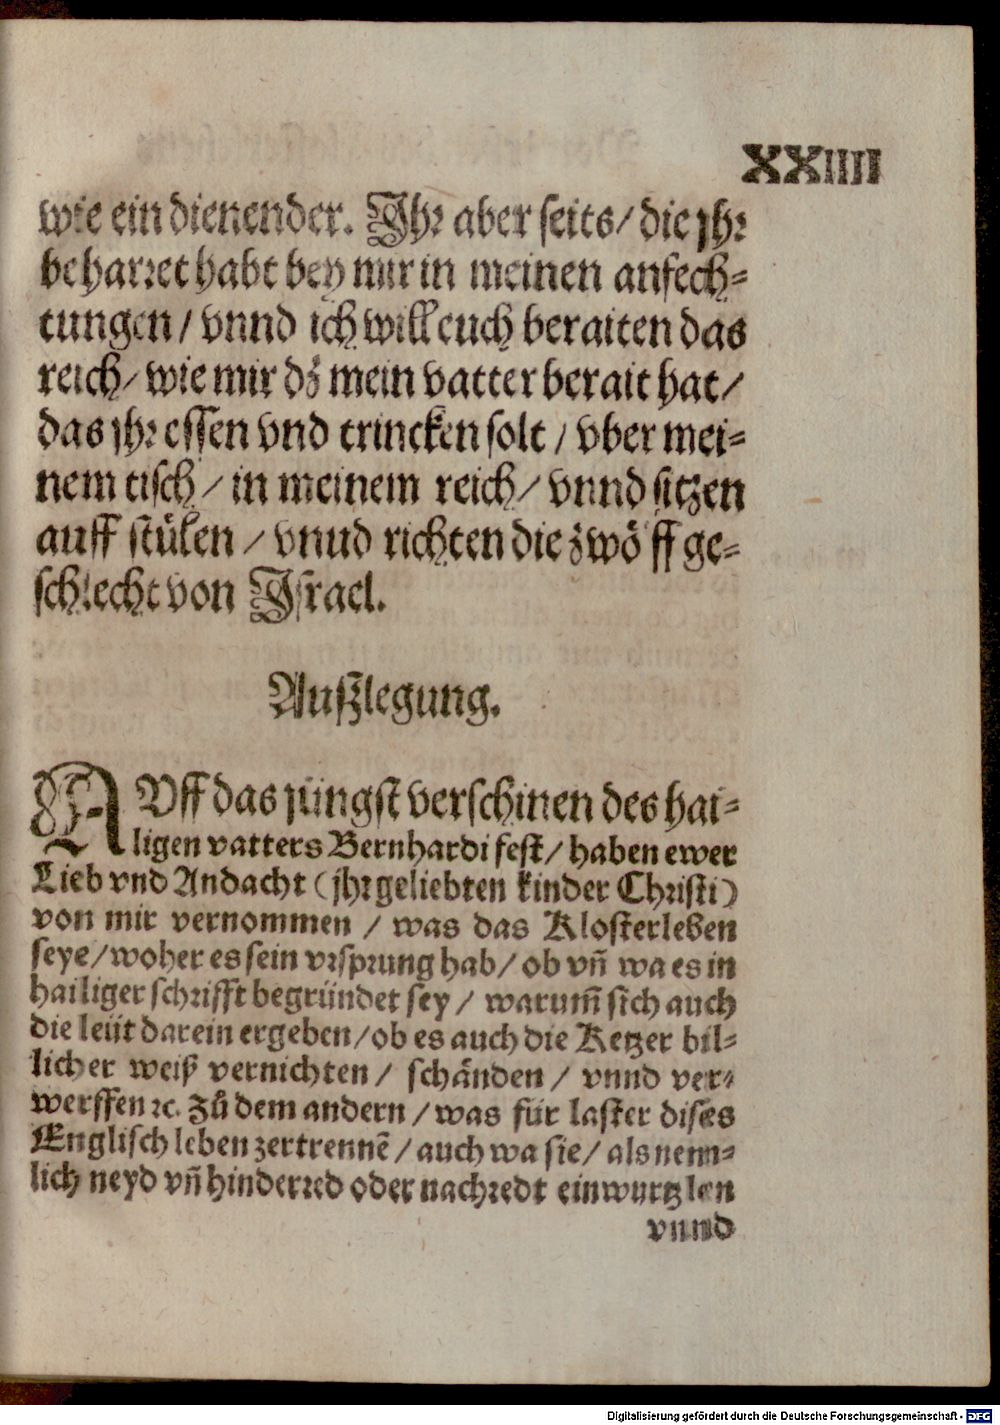 XXIIII
wie ein dienender. Jhꝛ aber seits/ die jhꝛ
beharꝛet habt bey mir in meinen anfech⸗
tungen/ vnnd ich will euch beraiten das
reich/ wie mir dz̃ mein vatter berait hat/
das jhꝛ essen vnd trincken solt/ vber mei⸗
nem tisch/ in meinem reich/ vnnd sitzen
auff stuͤlen/ vnud richten die zwoͤ ff ge⸗
schlecht von Jsrael.
Außlegung.
AVff das juͤngst verschinen des hai⸗
ligen vatters Bernhardi fest/ haben ewer
Lieb vnd Andacht (jhꝛ geliebten kinder Chꝛisti)
von mir vernommen/ was das Klosterleben
seye/ woher es sein vꝛspꝛung hab/ ob vñ wa es in
hailiger schꝛifft begründet sey/ warum̃ sich auch
die leüt darein ergeben/ ob es auch die Ketzer bil⸗
licher weiß vernichten/ schaͤnden/ vnnd ver⸗
werffen ꝛc. Zuͦ dem andern/ was für laster dises
Englisch leben zertrennẽ/ auch wa sie/ als nem⸗
lich neyd vñ hinderꝛed oder nachꝛedt einwurtzlen
vnnd
Digitalisierung gefördert durch die Deutsche Forschungsgemeinschaft - DFG